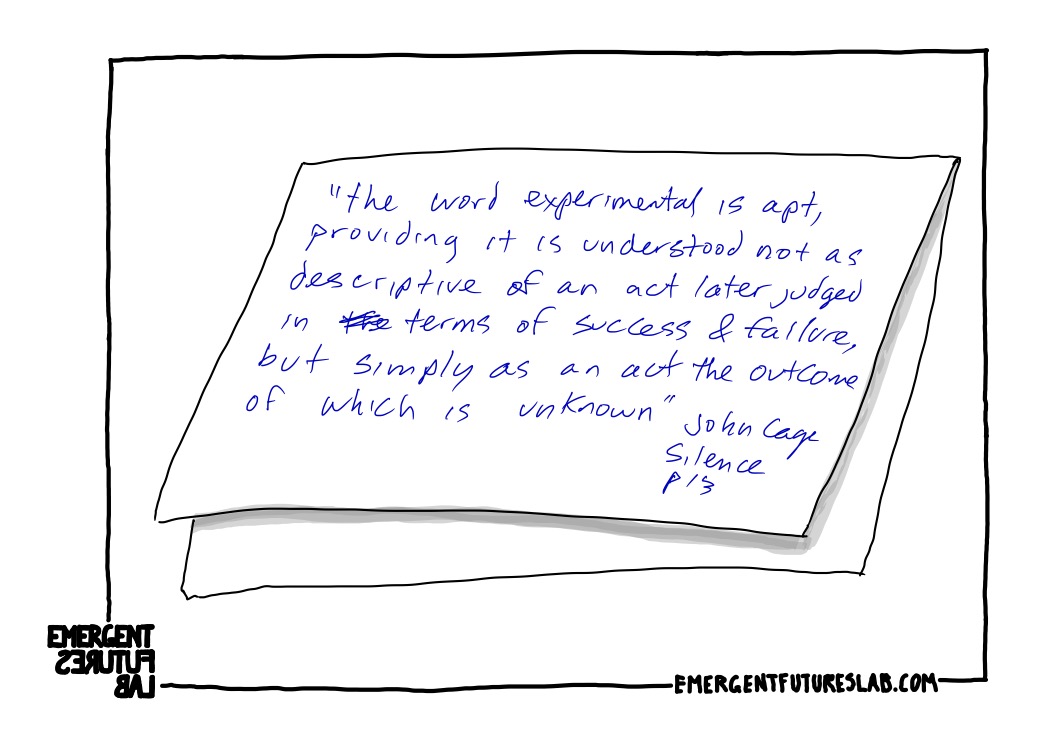 "the word experimental is apt,
providing it is understood not as
descriptive of an act later judged
in the terms of success & failure,
but simply as an act the outcome
of which is unknown"
John Cage
Silence
p 13
EMERGENT
FUTURES
LAB
EMERGENTFUTURESLAB.COM